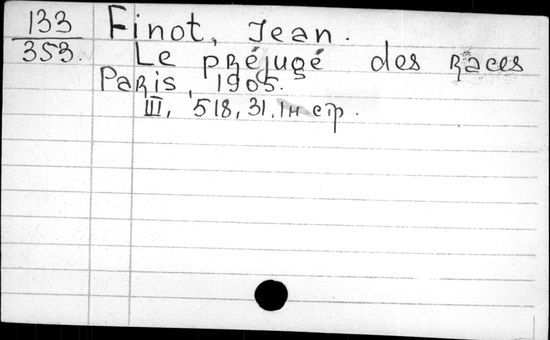 133 Finot, Jean.
353. Le préjugé des races
Paris, 1905.
III, 518, 31, 1н стр.